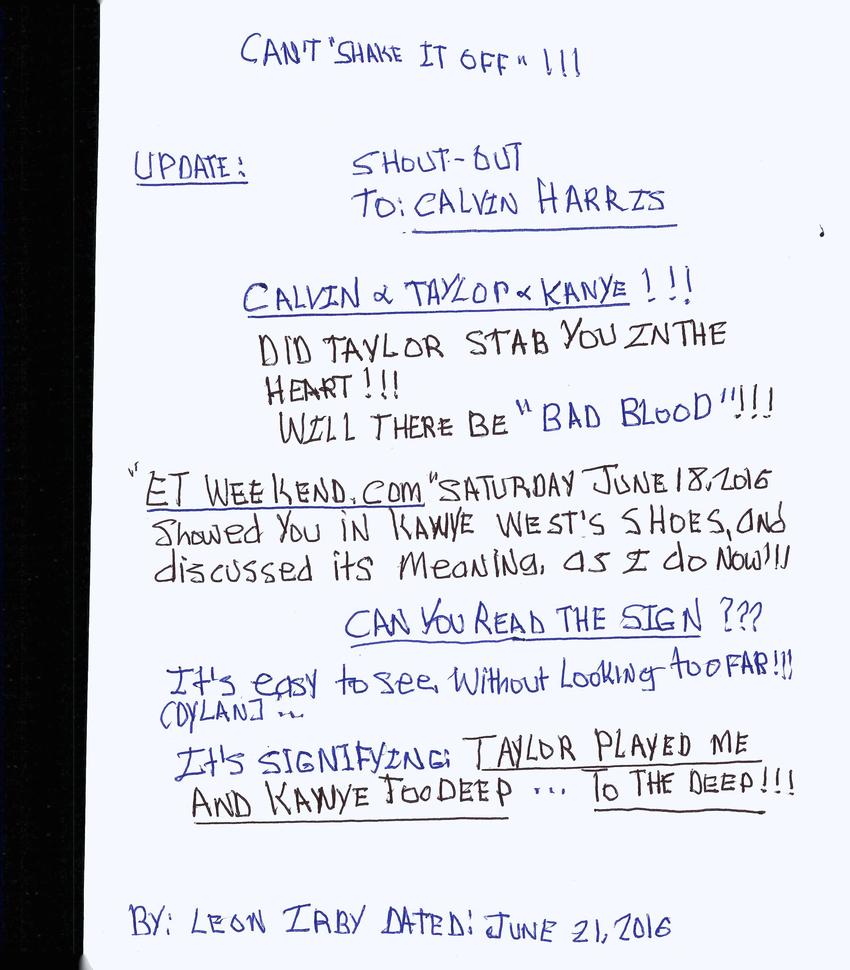 CAN'T "SHAKE IT OFF" !!!
UPDATE: SHOUT-OUT
TO: CALVIN HARRIS
CALVIN & TAYLOR & KANYE !!!
DID TAYLOR STAB YOU IN THE
HEART!!!
WILL THERE BE "BAD BLOOD"!!!
"ET WEEKEND.COM" SATURDAY JUNE 18, 2016
Showed You iN KANYE WEST'S SHOES, AND
discussed its MeaNiNg, as I do NOW!!!
CAN YOU READ THE SIGN ???
It's easy to see, Without LookiNg too FAR!!!
(DYLAN] ...
It's SIGNIFYING: TAYLOR PLAYED ME
AND KANYE TOO DEEP ... TO THE DEEP!!!
BY: LEON IRBY DATED: JUNE 21, 2016